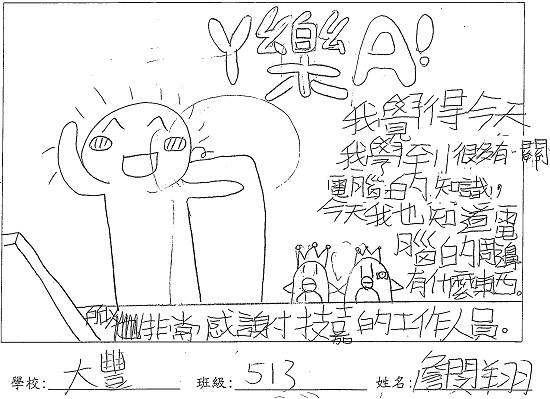 Y樂A!
我覺得今天
我學到很多有關
電腦的知識,
今天我也知道電
腦的周邊
有什麼東西。
所以非常感謝技嘉的工作人員。
學校: 大豐 班級: 513 姓名: 詹閔翔